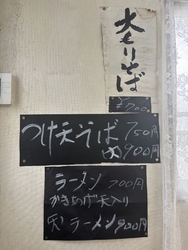 大もりそば
￥700
つけ天そば 750円
大 900円
ラーメン 700円
かきあげ天入り
天ラーメン 900円